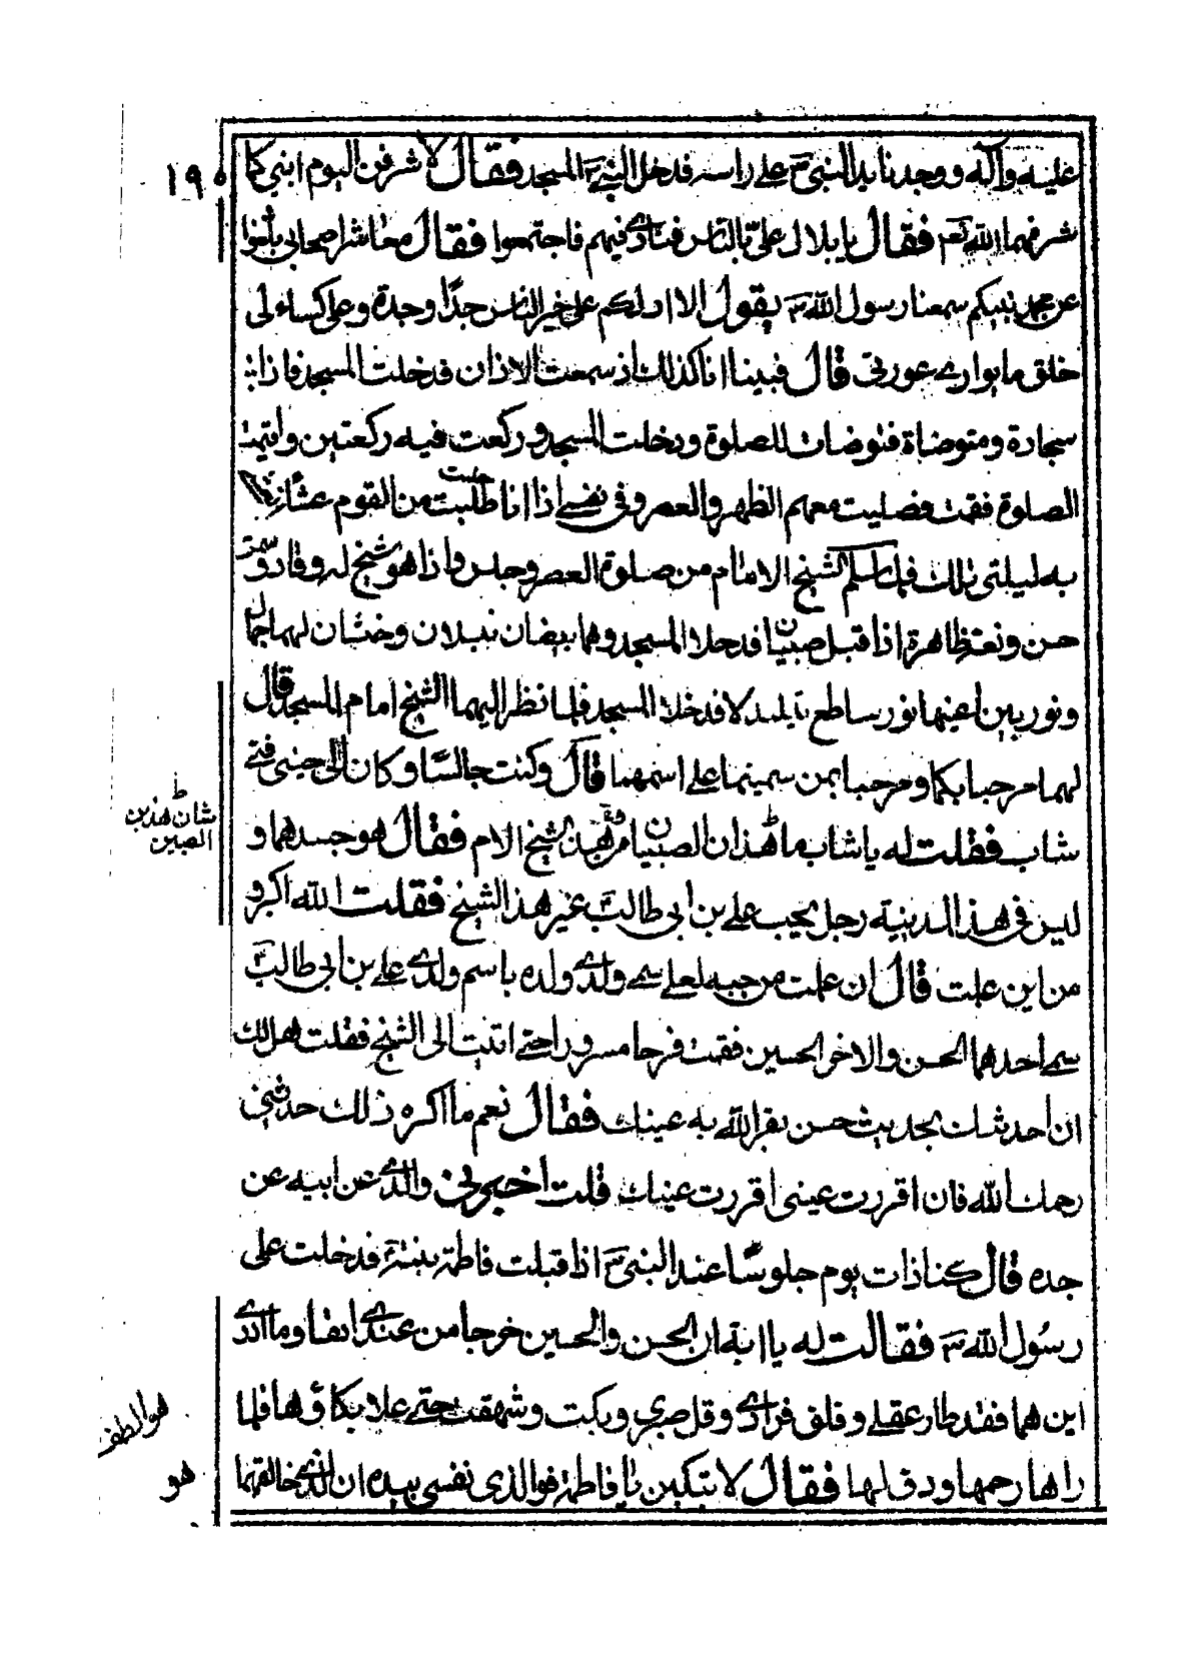 ١٩٠
عليه وآله ووجدنا يد النبي ص على راسه فدخل النبي ص المسجد فقال لاشرفن اليوم ابني كما
شرفهما الله تعم فقال يا بلال علي بالناس فنادى فيهم فاجتمعوا فقال معاشر اصحابي بلغوا
عن محمد نبيكم سمعنا رسول الله ص يقول الا ادلكم على خير الناس جدا وجدة وعلى كساء لى
خلق ما يوارى عورتى قال فبينا انا كذلك اذ سمعت الاذان فدخلت المسجد فاذا
سجادة ومتوضاة فتوضات للصلوة ودخلت المسجد وركعت فيه ركعتين واقيمت
الصلوة فقمت فصليت معهم الظهر والعصر وفى نفسى اذا انا طلبت من القوم عشاء
به ليلتى تلك فلما سلم الشيخ الامام من صلوة العصر وجلس واذا هو شيخ له وقار وسمت
حسن ونعمة ظاهرة اذا قبل صبيان فدخلا المسجد وهما بيضان نبيلان وضيئان لهما جمال
ونور بين اعينهما نور ساطع فدخلا المسجد فلما نظر اليهما الشيخ امام المسجد قال
لهما مرحبا بكما ومرحبا بمن سميتما على اسمهما قال وكنت جالسا وكان الى جنبى فتى
شاب فقلت له يا شاب ما هذان الصبيان ومن هذ الشيخ الامام فقال هو جدهما و
ليس فى هذ المدينة رجل يحب على بن ابى طالب ع غير هذ الشيخ فقلت الله اكبر و
من اين علمت قال ان علمت من حبه لعلى سمى ولدى ولده باسم ولدى على بن ابى طالب ع
سمى احدهما الحسن والاخر الحسين فقمت فرحا مسرورا حتى اتيت الى الشيخ فقلت هل لك
ان احدثك بحديث حسن يقر الله به عينك فقال نعم ما اكره ذلك حدثني
رحمك الله فان اقررت عينى اقررت عينك قلت اخبرنى والدى عن ابيه عن
جده قال كنا ذات يوم جلوسا عند النبى ص اذا قبلت فاطمة بنته فدخلت على
رسول الله ص فقالت له يا ابة ان الحسن والحسين خرجا من عندى انفا وما ادرى
اين هما فقد طار عقلى وقلق فوادى وقل صبرى وبكت وشهقت حتى علا بكاؤها فلما
راها رحمها ورق لها فقال لا تبكين يا فاطمة فوالذى نفسى بيده ان الذى خالقهما
ط
شان هذين
الصبين
هو الطف
هو